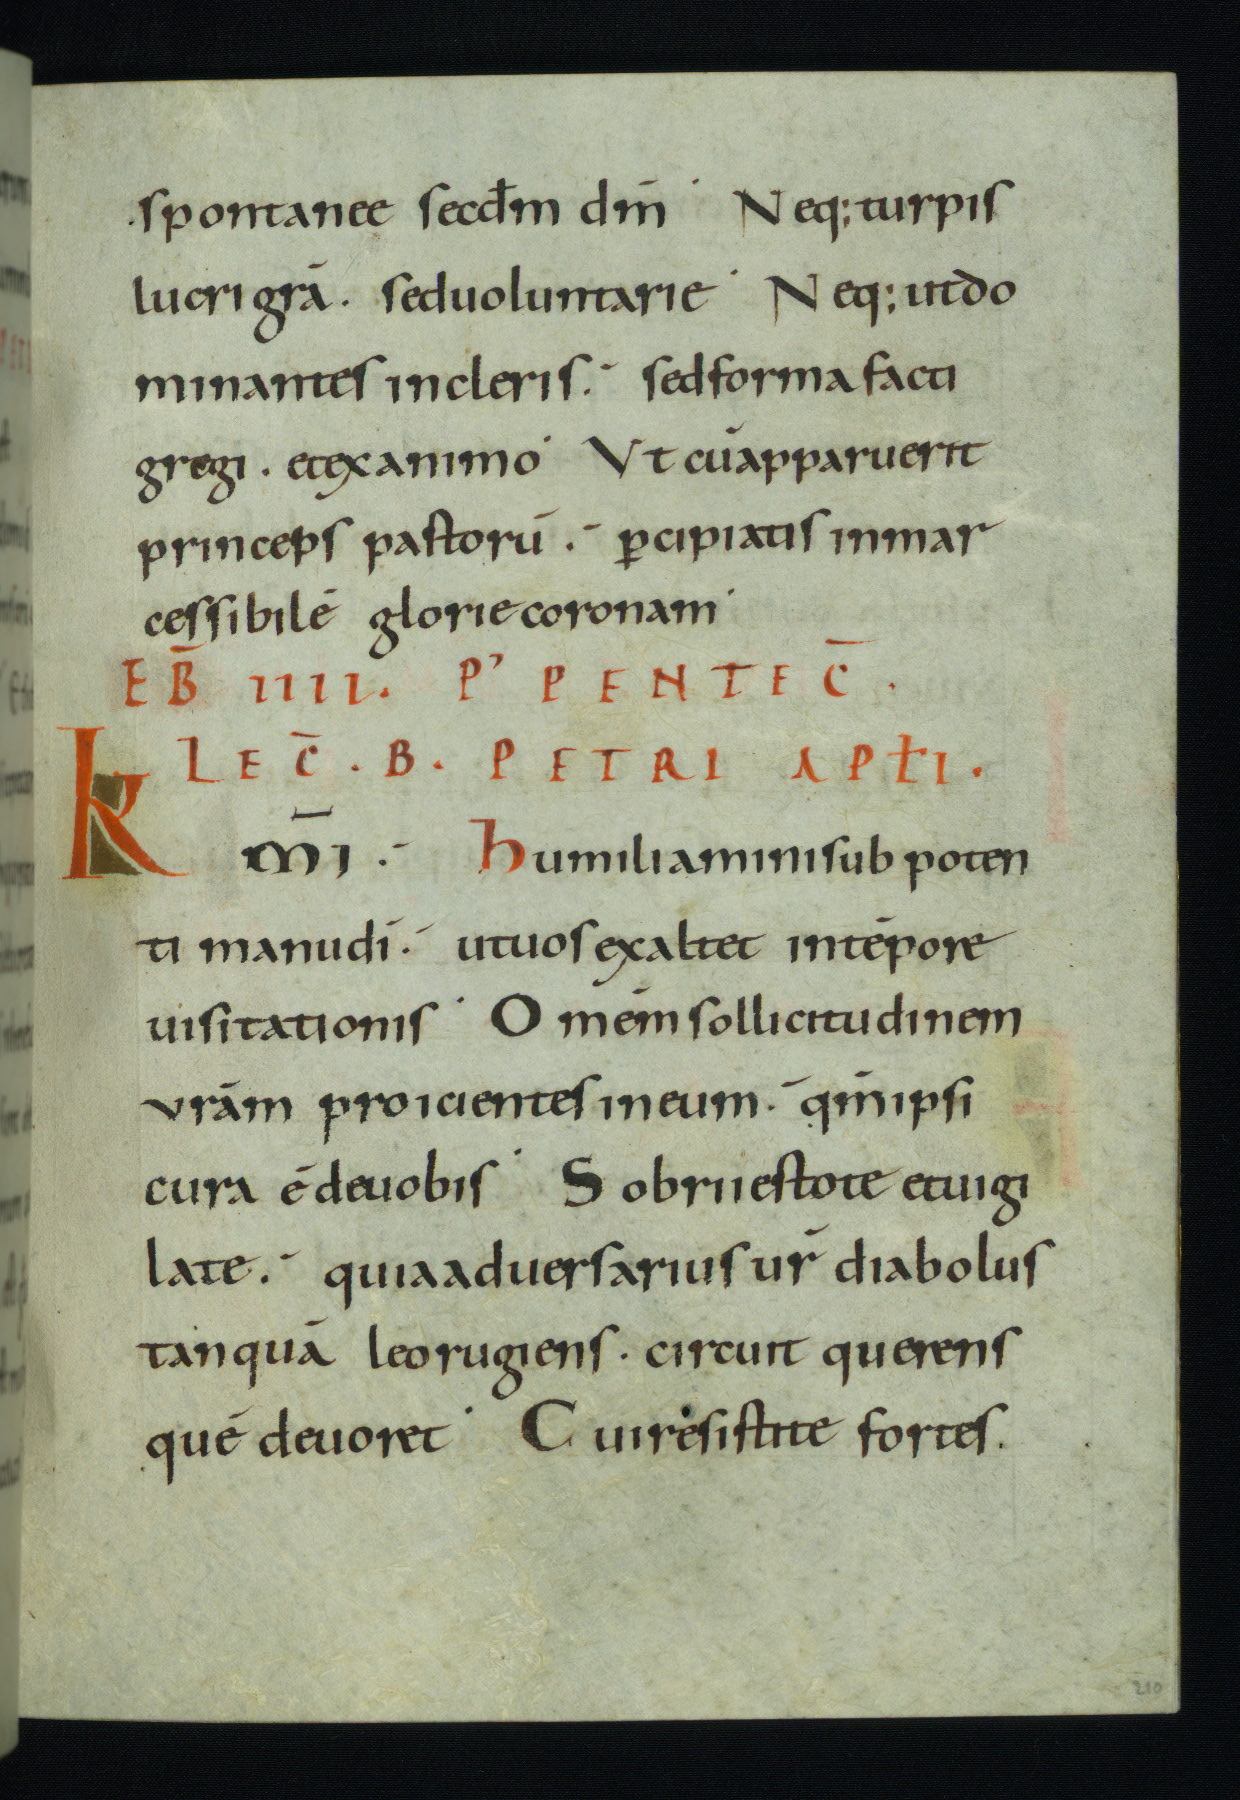 spontanee secdm dm̄ Neq; turpis
lucri grā. sed uoluntarie Neq; ut do
minantes in cleris. sed forma facti
gregi. et ex animo Vt cū apparuerit
princeps pastorū. ꝑcipiatis inmar
cessibilē glorie coronam
EB̄ IIII. P' PENTEC̄.
LEC̄. B. PETRI APŁI.
Km̄i. humiliamini sub poten
ti manu dī. ut uos exaltet in tēpore
uisitationis Omēm sollicitudinem
vrām proicientes in eum. qm̄ ipsi
cura ē de uobis Sobrii estote et uigi
late. quia aduersarius ur̄ diabolus
tanquā leo rugiens. circuit querens
quē deuoret Cui resistite fortes.
210